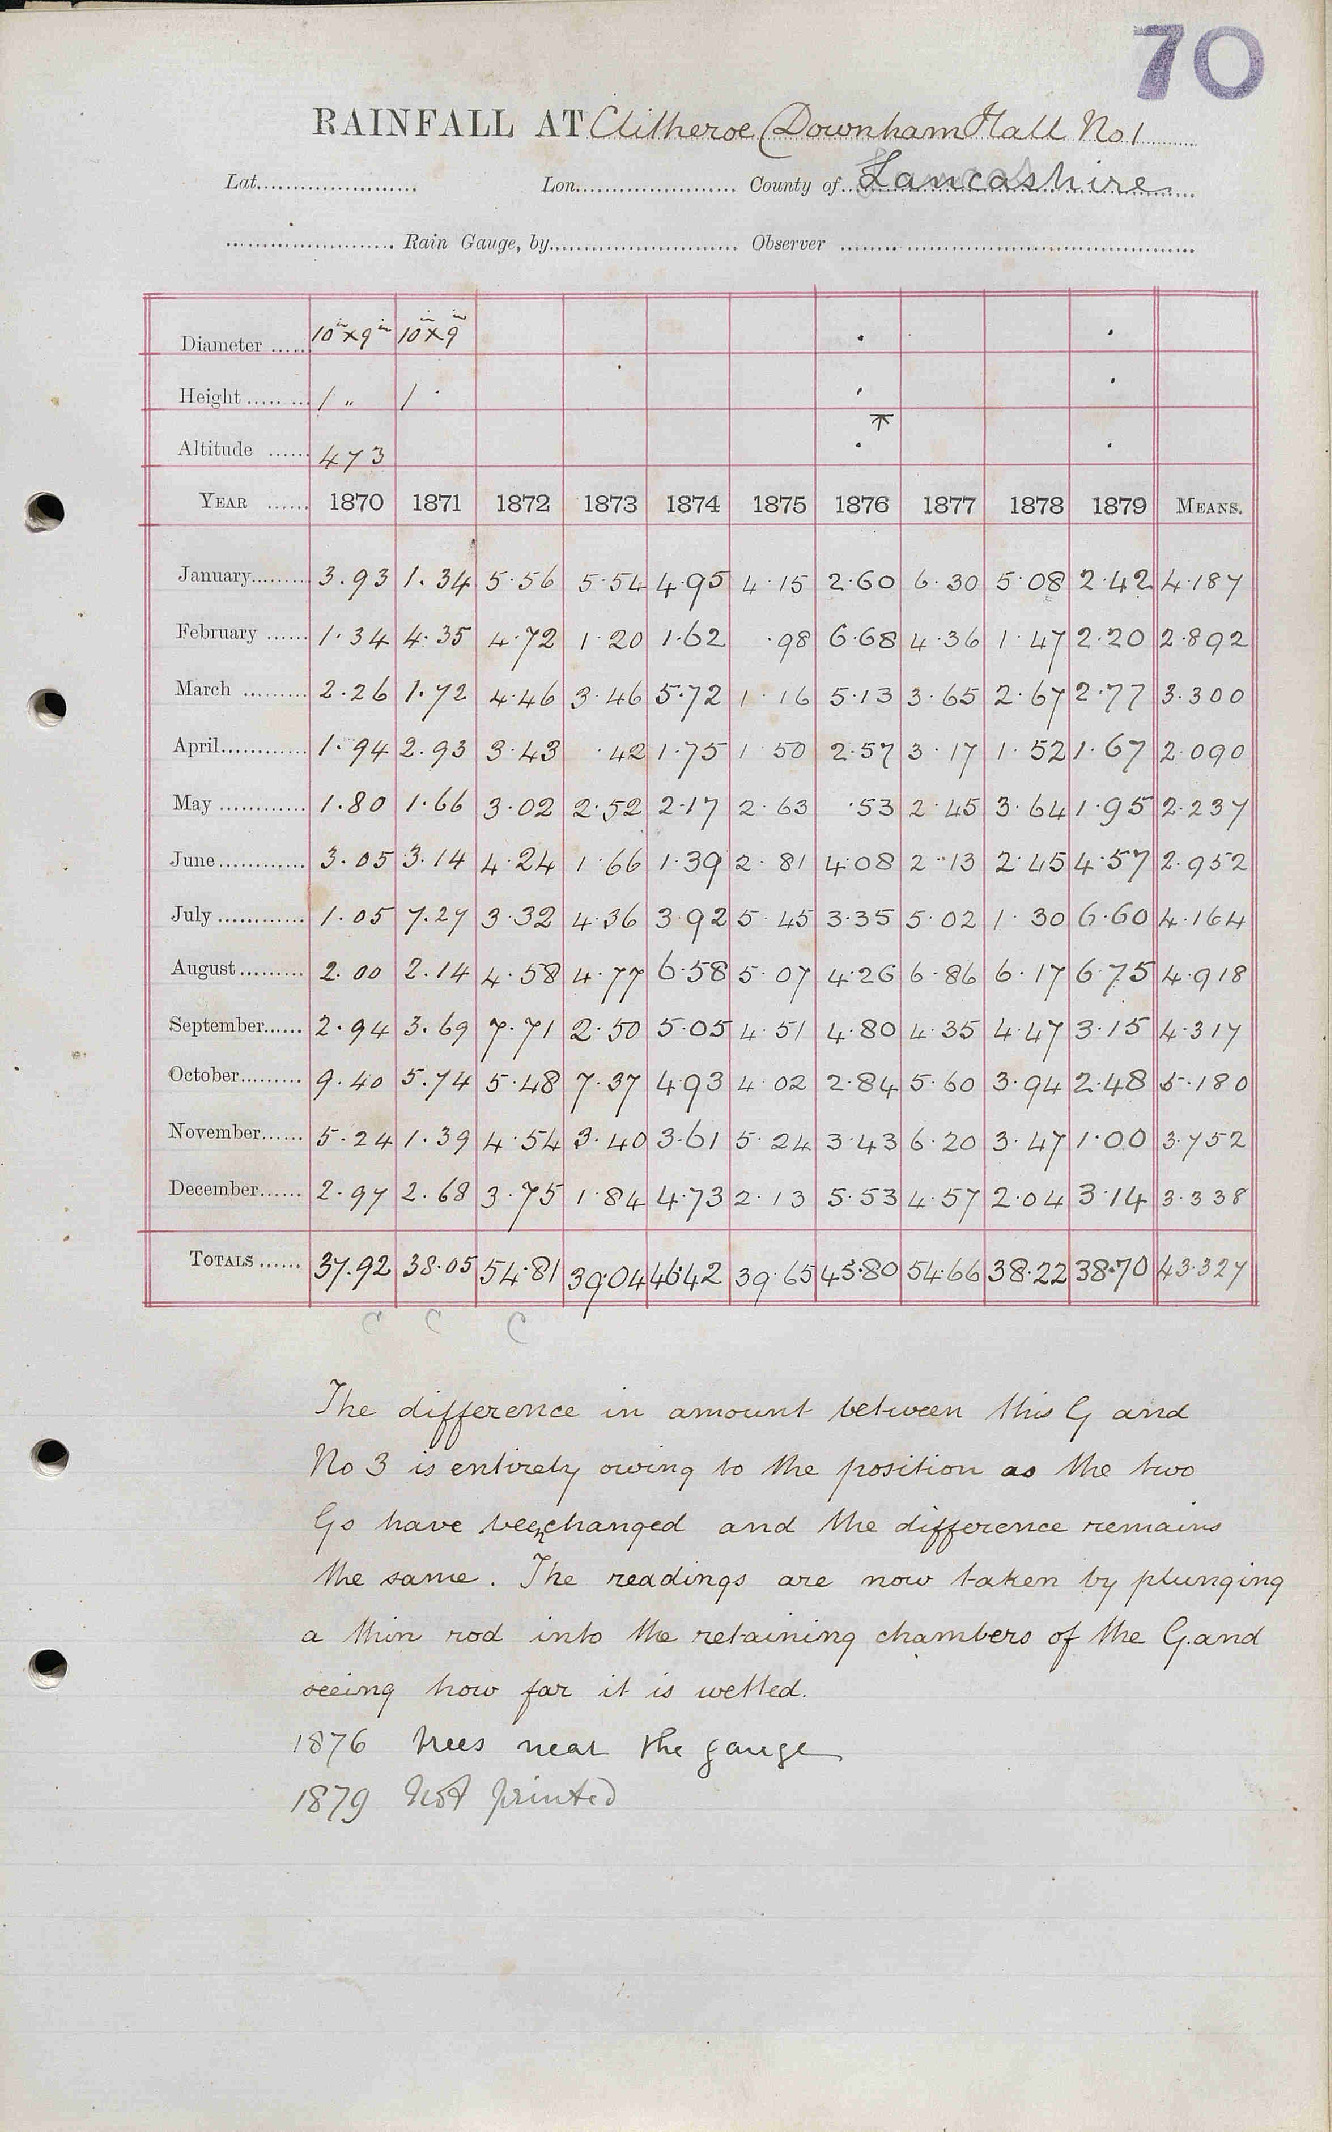 70
RAINFALL AT Clitheroe (Downham Hall No 1
Lat. Lon. County of Lancashire
Rain Gauge, by Observer
Diameter 10in x 9in 10in x 9in
Height 1 " 1
Altitude 473
YEAR 1870 1871 1872 1873 1874 1875 1876 1877 1878 1879 MEANS.
January 3.93 1.34 5.56 5.54 4.95 4.15 2.60 6.30 5.08 2.42 4.187
February 1.34 4.35 4.72 1.20 1.62 .98 6.68 4.36 1.47 2.20 2.892
March 2.26 1.72 4.46 3.46 5.72 1.16 5.13 3.65 2.67 2.77 3.300
April 1.94 2.93 3.43 .42 1.75 1.50 2.57 3.17 1.52 1.67 2.090
May 1.80 1.66 3.02 2.52 2.17 2.63 .53 2.45 3.64 1.95 2.237
June 3.05 3.14 4.24 1.66 1.39 2.81 4.08 2.13 2.45 4.57 2.952
July 1.05 7.27 3.32 4.36 3.92 5.45 3.35 5.02 1.30 6.60 4.164
August 2.00 2.14 4.58 4.77 6.58 5.07 4.26 6.86 6.17 6.75 4.918
September 2.94 3.69 7.71 2.50 5.05 4.51 4.80 4.35 4.47 3.15 4.317
October 9.40 5.74 5.48 7.37 4.93 4.02 2.84 5.60 3.94 2.48 5.180
November 5.24 1.39 4.54 3.40 3.61 5.24 3.43 6.20 3.47 1.00 3.752
December 2.97 2.68 3.75 1.84 4.73 2.13 5.53 4.57 2.04 3.14 3.338
TOTALS 37.92 38.05 54.81 39.04 46.42 39.65 45.80 54.66 38.22 38.70 43.327
C C C
The difference in amount between this G and
No 3 is entirely owing to the position as the two
Gs have been changed and the difference remains
the same. The readings are now taken by plunging
a thin rod into the retaining chambers of the G. and
seeing how far it is wetted.
1876 trees near the gauge
1879 Not printed